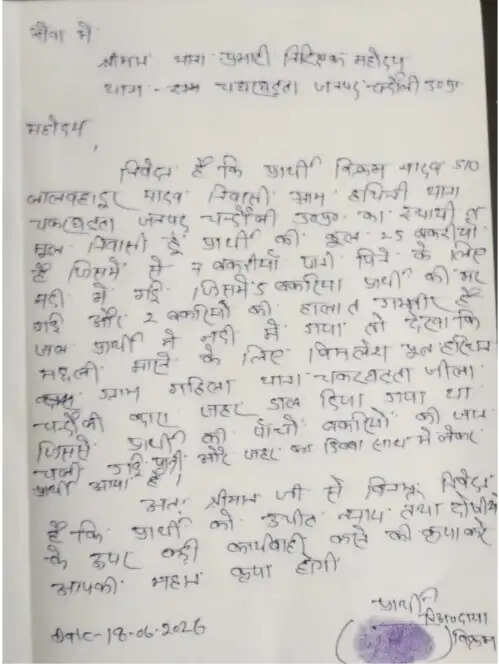 सेवा में
श्रीमान थाना प्रभारी निरिक्षक महोदय
थाना - चकरघट्टा जनपद चन्दौली उ०प्र०
महोदय,
निवेदन है कि प्रार्थी विक्रम यादव S/O
लालबहादुर यादव निवासी ग्राम थाना
चकरघट्टा जनपद चन्दौली उ०प्र० का स्थायी व
मूल निवासी हूँ प्रार्थी की कुल 25 बकरीया
है जिसमें से 7 बकरीयाँ पानी पिने के लिए
नदी में गई जिसमें 5 बकरिया प्रार्थी की मर
गई और 2 बकरियों की हालात गम्भीर है
जब प्रार्थी ने नदी में गया तो देखा कि
मछली मारने के लिए विमलेश
ग्राम गहिला थाना चकरघट्टा जीला
चन्दौली द्वारा जहर डाल दिया गया था
जिससे प्रार्थी की पाँचों बकरियों की जान
चली गई और जहर का डिब्बा साथ में लेकर
प्रार्थी आया है।
अतः श्रीमान जी से विनम्र निवेदन
है कि प्रार्थी को उचीत न्याय तथा दोषीयो
के उपर कड़ी कार्यवाही करने की कृपा करे
आपकी महान कृपा होगी
प्रार्थी
Date-18-06-2026
विक्रम